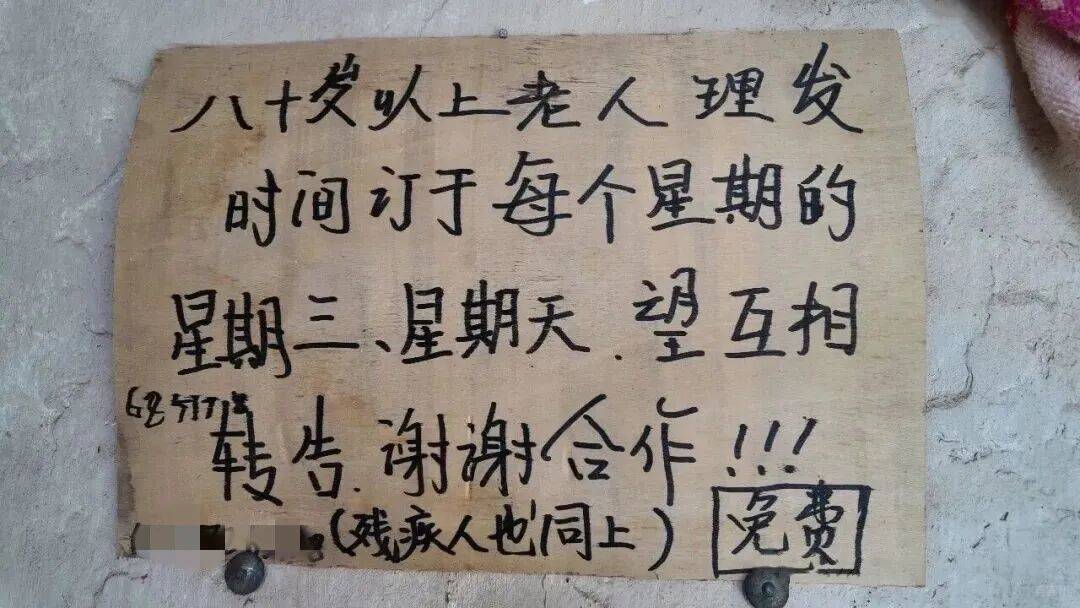 八十岁以上老人理发
时间订于每个星期的
星期三、星期天.望互相
转告.谢谢合作!!!
(残疾人也同上)
免费